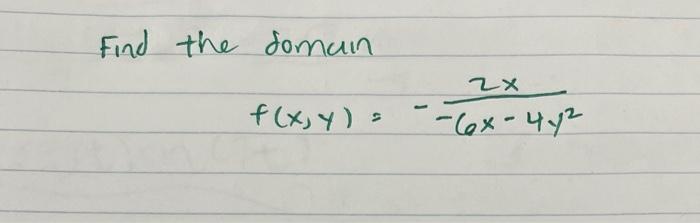 Find the domain
f(x,y) = - 2x / -6x - 4y²